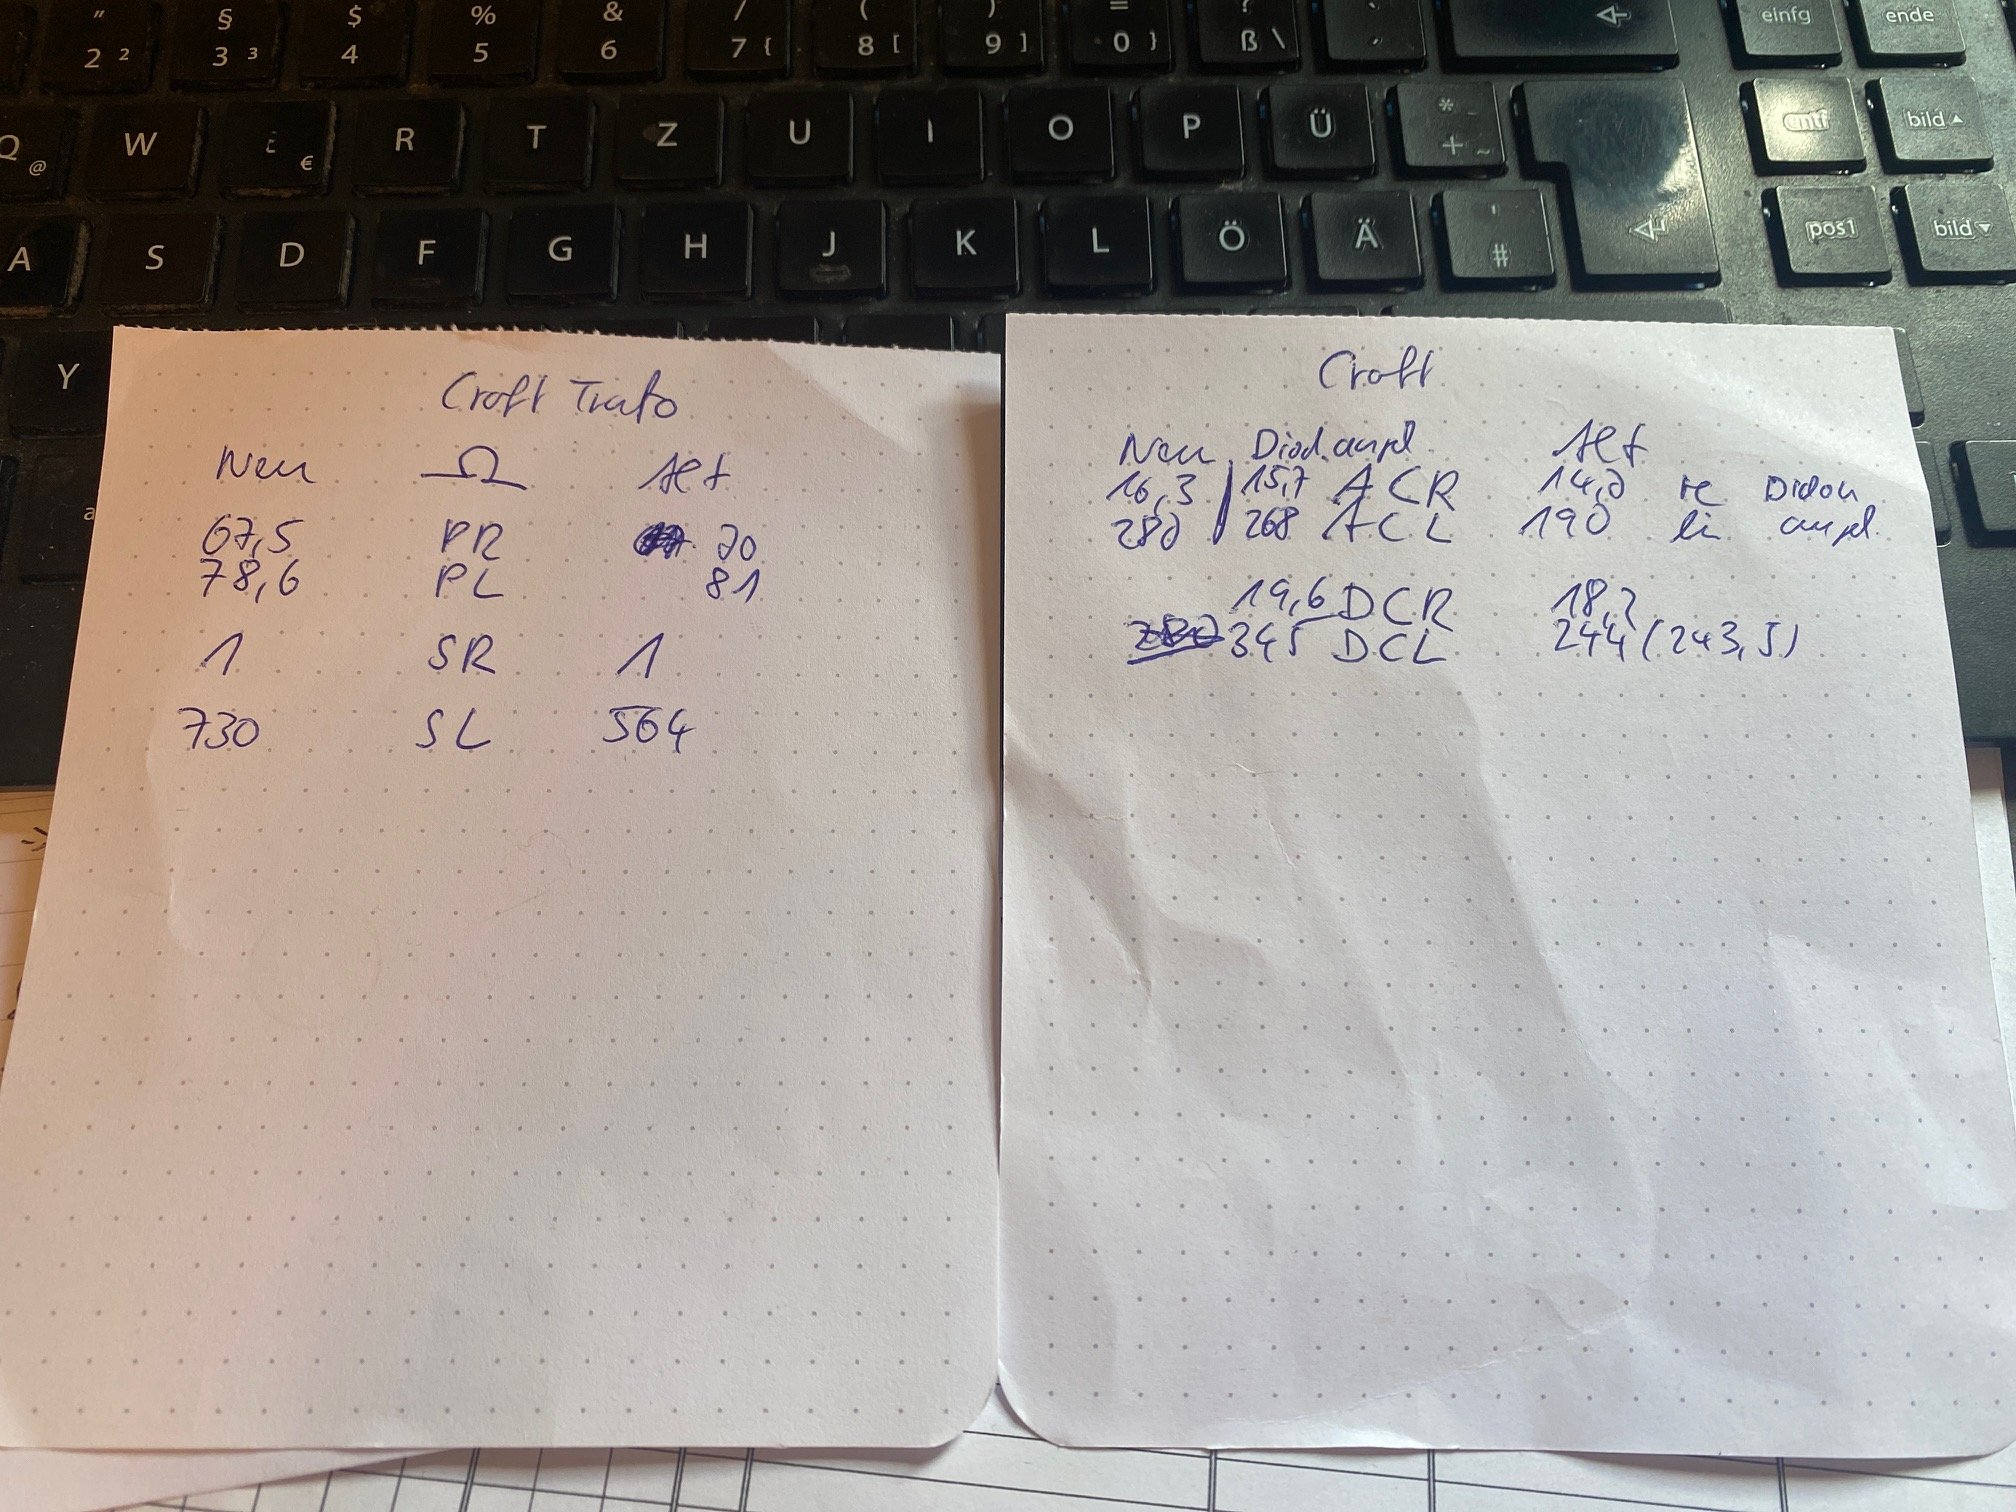 " § $ % & / ( ) = ? `
2 ² 3 ³ 4 5 6 7 { 8 [ 9 ] 0 } ß \ ´ einfg ende
Q @ W € R T Z U I O P Ü * + ~ entf bild ▲
A S D F G H J K L Ö Ä ' # pos1 bild ▼
Y
Croft Trafo
Neu Ω Alt
67,5 PR 70
78,6 PL 81
1 SR 1
730 SL 564
Croft
Neu Diod. angel. Alt
16,3 | 15,7 ACR 14,0 re Dioden
280 | 268 ACL 190 li angel.
19,6 DCR 18,2
345 DCL 244 (243,5)